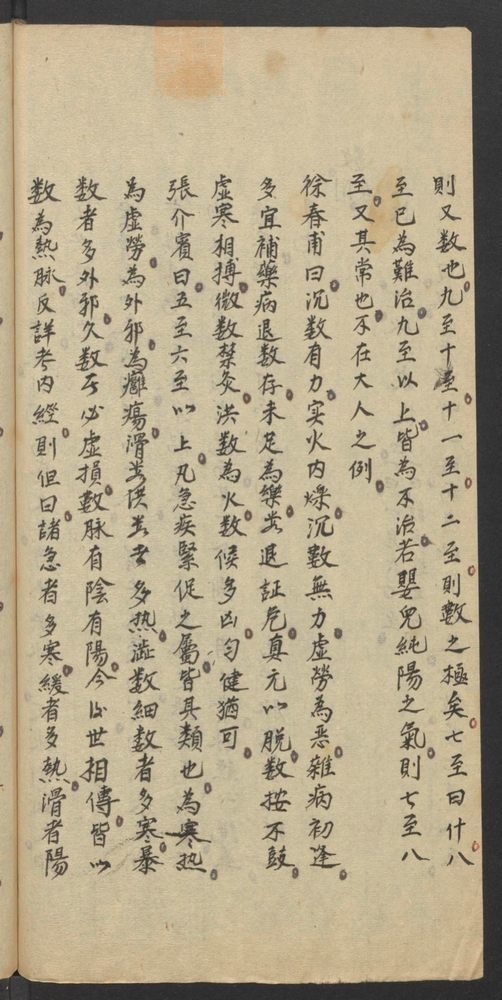 則又数也九至十至十一至十二至則數之極矣七至曰什八
至已為難治九至以上皆為不治若嬰兒純陽之氣則七至八
至又其常也不在大人之例
徐春甫曰沉数有力实火内燥沉數無力虛勞為恶雜病初逢
多宜補藥病退数存未足為樂数退証危真元以脱数按不鼓
虛寒相搏微数禁灸洪数為火数候多凶匀健猶可
張介賓曰五至六至以上凡急疾緊促之屬皆其類也為寒热
為虛勞為外邪為癰瘍滑数洪数者多热澁数細数者多寒暴
数者多外邪久数者必虛損數脉有陰有陽今後世相傳皆以
数為熱脉反詳考内經則但曰諸急者多寒緩者多熱滑者陽